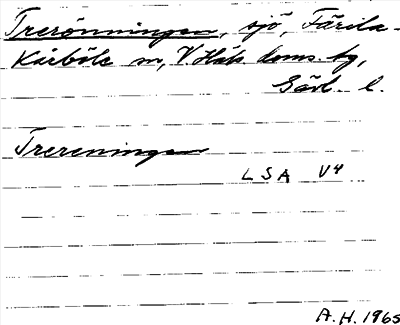 Trerönningen, sjö, Färila-
Kårböle sn, V. Häls. doms. hg,
Gävl. l.
Trereningen
LSA V4
A.H. 1965